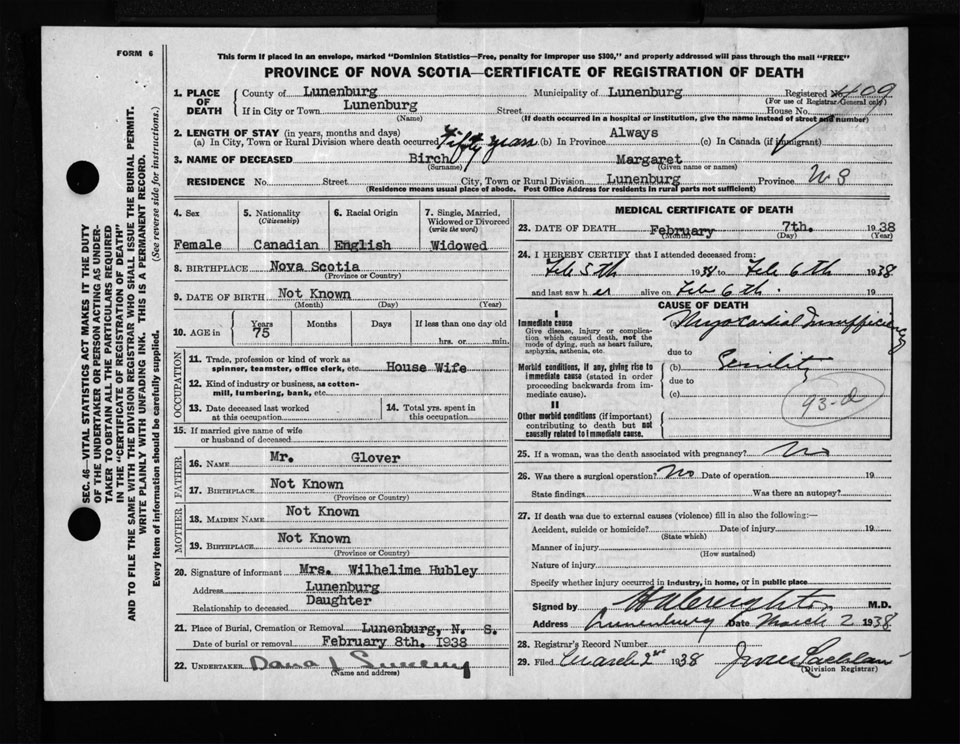 FORM 6
This form if placed in an envelope, marked "Dominion Statistics—Free, penalty for improper use $300," and properly addressed will pass through the mail "FREE"
PROVINCE OF NOVA SCOTIA—CERTIFICATE OF REGISTRATION OF DEATH
1. PLACE OF DEATH County of Lunenburg Municipality of Lunenburg Registered No. 409
(For use of Registrar General only)
If in City or Town Lunenburg Street House No.
(Name) (If death occurred in a hospital or institution, give the name instead of street and number)
2. LENGTH OF STAY (in years, months and days)
(a) In City, Town or Rural Division where death occurred Fifty years (b) In Province Always (c) In Canada (if immigrant)
3. NAME OF DECEASED Birch Margaret
(Surname) (Given name or names)
RESIDENCE No. Street City, Town or Rural Division Lunenburg Province N S
(Residence means usual place of abode. Post Office Address for residents in rural parts not sufficient)
4. Sex 5. Nationality (Citizenship) 6. Racial Origin 7. Single, Married, Widowed or Divorced (write the word)
Female Canadian English Widowed
8. BIRTHPLACE Nova Scotia
(Province or Country)
9. DATE OF BIRTH Not Known
(Month) (Day) (Year)
10. AGE in Years Months Days If less than one day old
75 hrs. or min.
OCCUPATION
11. Trade, profession or kind of work as spinner, teamster, office clerk, etc. House Wife
12. Kind of industry or business, as cotton-mill, lumbering, bank, etc.
13. Date deceased last worked at this occupation 14. Total yrs. spent in this occupation
15. If married give name of wife or husband of deceased
FATHER
16. NAME Mr. Glover
17. BIRTHPLACE Not Known
(Province or Country)
MOTHER
18. MAIDEN NAME Not Known
19. BIRTHPLACE Not Known
(Province or Country)
20. Signature of informant Mrs. Wilhelime Hubley
Address Lunenburg
Relationship to deceased Daughter
21. Place of Burial, Cremation or Removal Lunenburg, N. S.
Date of burial or removal February 8th. 1938
22. UNDERTAKER Dana J
(Name and address)
MEDICAL CERTIFICATE OF DEATH
23. DATE OF DEATH February 7th. 1938
(Month) (Day) (Year)
24. I HEREBY CERTIFY that I attended deceased from:
Feb 5th 1938 to Feb 6th 1938
and last saw her alive on Feb 6th 19
CAUSE OF DEATH
I
Immediate cause
Give disease, injury or complication which caused death, not the mode of dying, such as heart failure, asphyxia, asthenia, etc.
(a) Myocardial Insufficiency
due to
Morbid conditions, if any, giving rise to immediate cause (stated in order proceeding backwards from immediate cause).
(b) Senility
due to
(c)
93-d
II
Other morbid conditions (if important) contributing to death but not causally related to immediate cause.
25. If a woman, was the death associated with pregnancy? No
26. Was there a surgical operation? No Date of operation 19
State findings Was there an autopsy?
27. If death was due to external causes (violence) fill in also the following:—
Accident, suicide or homicide? Date of injury 19
(State which)
Manner of injury
(How sustained)
Nature of injury
Specify whether injury occurred in industry, in home, or in public place
Signed by H A Creighton M.D.
Address Lunenburg Date March 2 1938
28. Registrar's Record Number
29. Filed March 2nd 1938
(Division Registrar)
SEC. 46—VITAL STATISTICS ACT MAKES IT THE DUTY
OF THE UNDERTAKER OR PERSON ACTING AS UNDER-
TAKER TO OBTAIN ALL THE PARTICULARS REQUIRED
IN THE "CERTIFICATE OF REGISTRATION OF DEATH"
AND TO FILE THE SAME WITH THE DIVISION REGISTRAR WHO SHALL ISSUE THE BURIAL PERMIT.
WRITE PLAINLY WITH UNFADING INK. THIS IS A PERMANENT RECORD.
Every item of information should be carefully supplied. (See reverse side for instructions.)